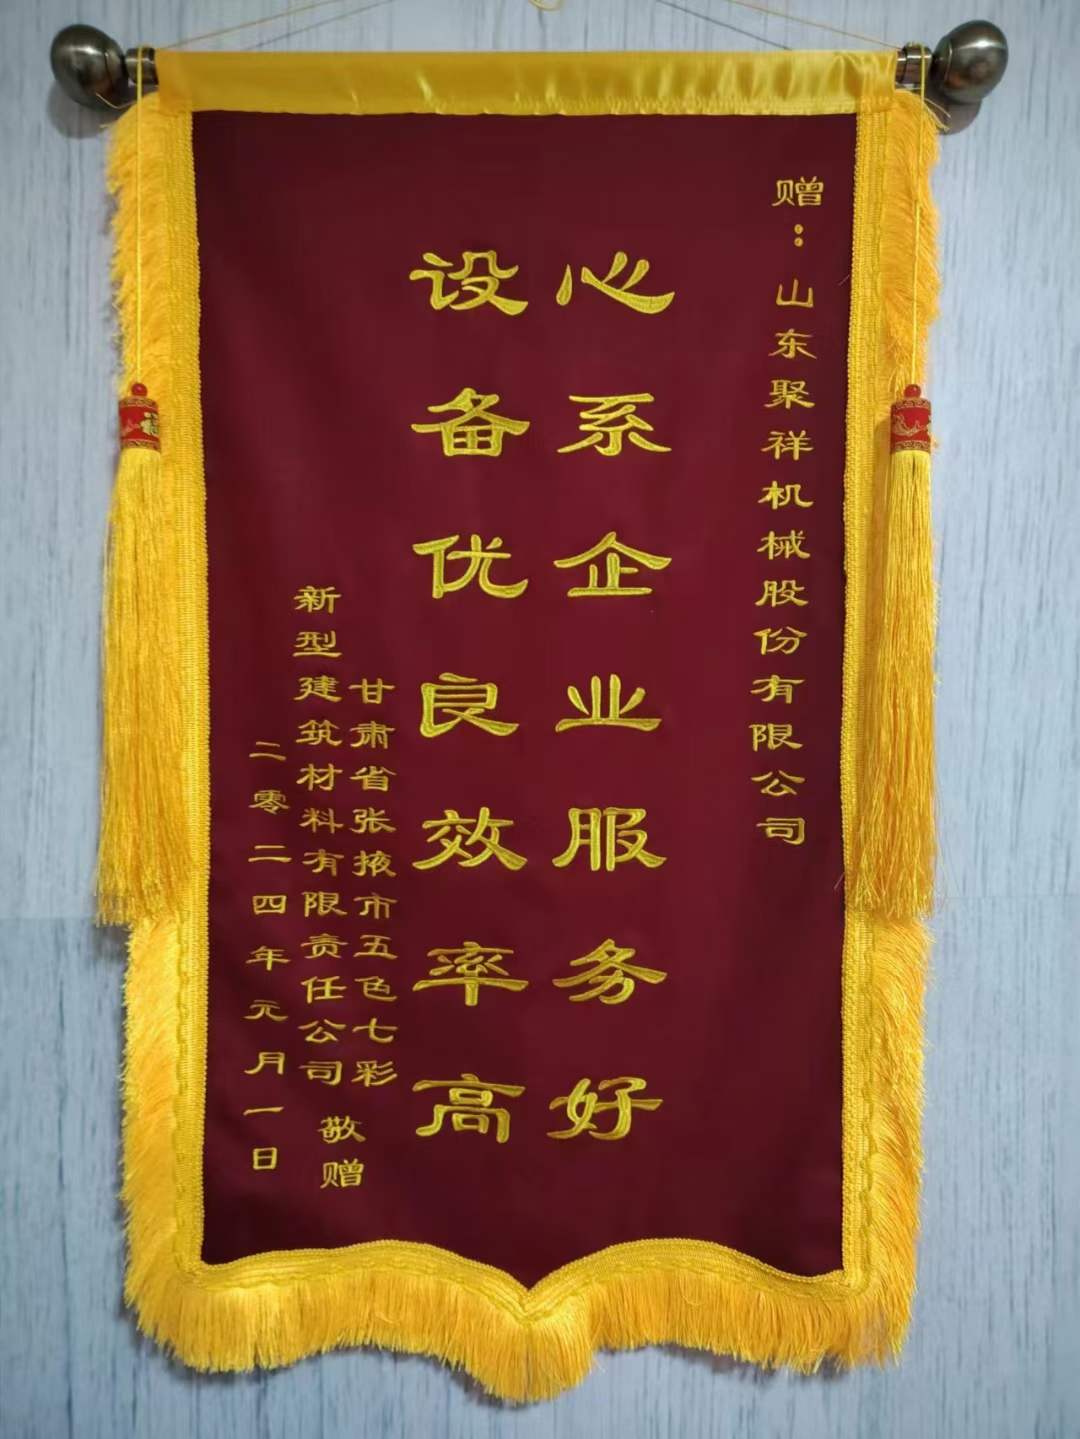 赠：山东聚祥机械股份有限公司
心系企业服务好
设备优良效率高
甘肃省张掖市五色七彩
新型建筑材料有限责任公司
敬赠
二零二四年元月一日